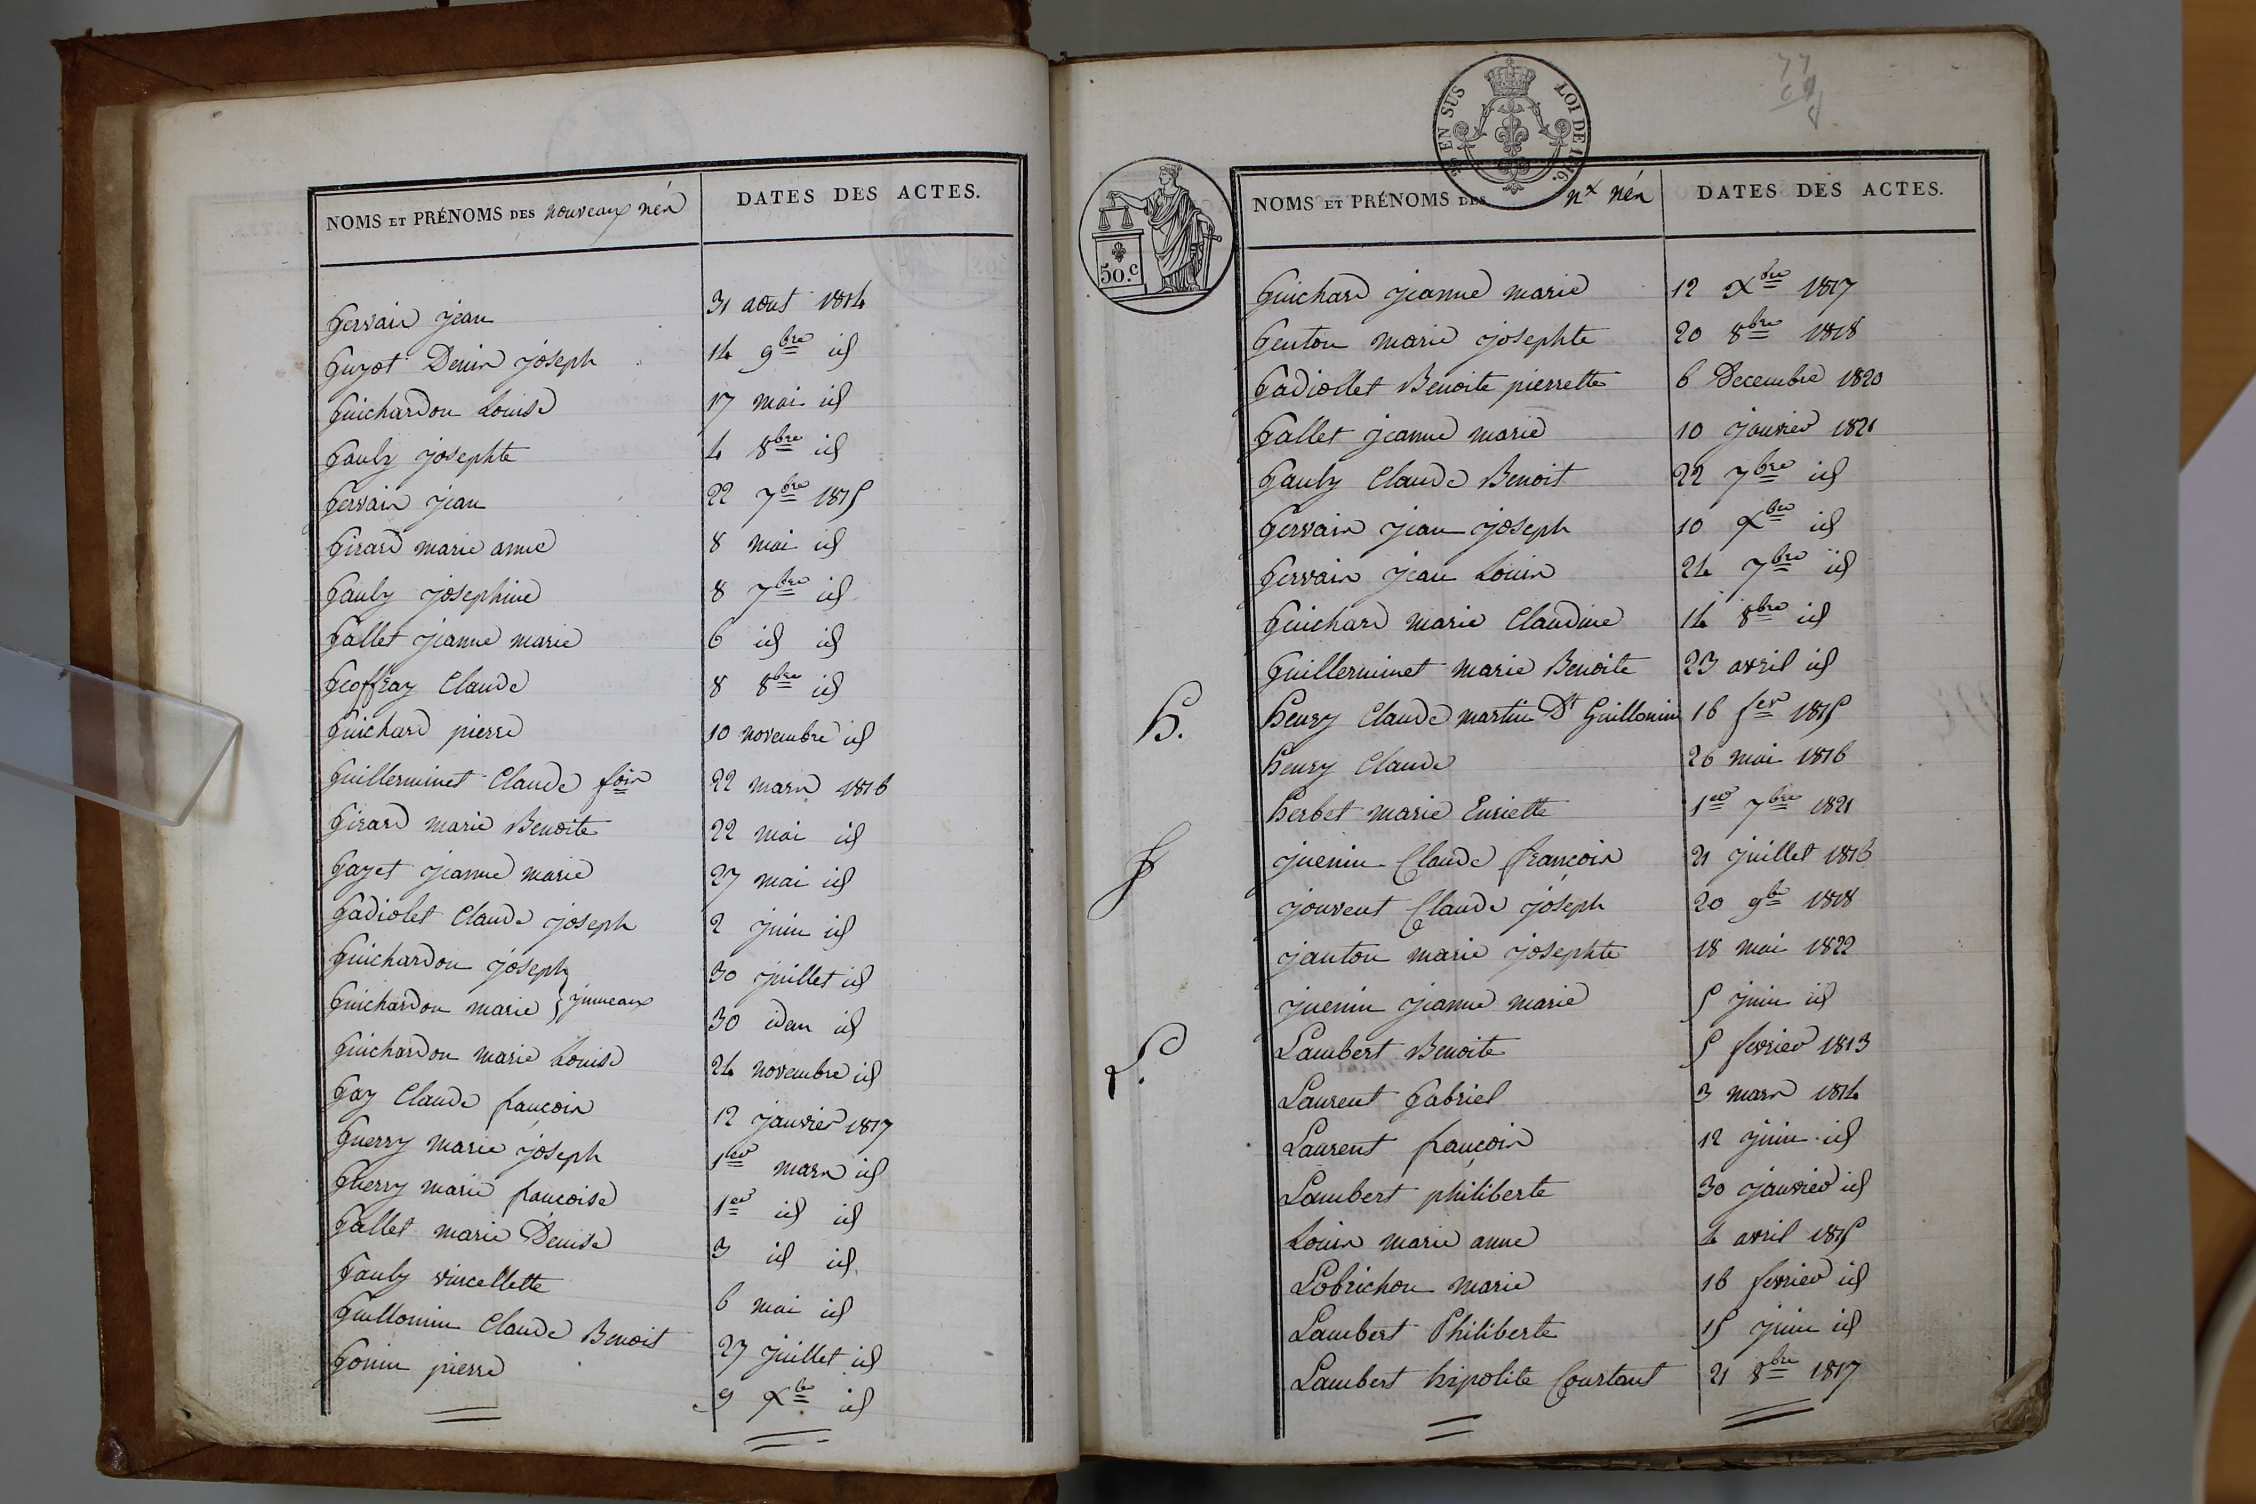 NOMS ET PRÉNOMS DES nouveaux nés DATES DES ACTES.
Gervais jean 31 aout 1814
Guyot Denis joseph 14 9bre id
Guichardon Louise 17 mai id
Gauly josephte 4 8bre id
Gervais jean 22 7bre 1815
Girard marie anne 8 mai id
Gauly josephine 8 7bre id
Gallet jeanne marie 6 id id
Geoffray Claude 8 8bre id
Guichard pierre 10 novembre id
Guillerminet Claude fois 22 mars 1816
Girard marie Benoite 22 mai id
Gayet jeanne marie 27 mai id
Gadiolet Claude joseph 2 juin id
Guichardon joseph 30 juillet id
Guichardon marie } jumeaux 30 idem id
Guichardon marie Louise 24 novembre id
Gay Claude francois 12 janvier 1817
Guerry marie joseph 1er mars id
Guerry marie francoise 1er id id
Gallet marie Denise 3 id id
Gauly vincellette 6 mai id
Guillomin Claude Benoit 27 juillet id
Gonin pierre 9 Xbre id
EN SUS LOI DE 1816.
50.c
NOMS ET PRÉNOMS DES nx nés DATES DES ACTES.
Guichard jeanne marie 12 Xbre 1817
Genton marie josephte 20 8bre 1818
Gadiollet Benoite pierrette 6 Decembre 1820
Gallet jeanne marie 10 janvier 1821
Gauly Claude Benoit 22 7bre id
Gervais jean joseph 10 Xbre id
Gervais jean Louis 24 7bre id
Guichard marie Claudine 14 8bre id
Guillerminet marie Benoite 23 avril id
H. henry Claude martin Dt Guillomin 16 fer 1815
henry Claude 26 mai 1816
herbet marie Enriette 1er 7bre 1821
J juenin Claude françois 21 juillet 1813
jouvent Claude joseph 20 9bre 1818
janton marie josephte 18 mai 1822
juenin jeanne marie 5 juin id
L. Lambert Benoite 5 fevrier 1813
Laurent Gabriel 3 mars 1814
Laurent francois 12 juin id
Lambert philiberte 30 janvier id
Louis marie anne 4 avril 1815
Lobrichon marie 16 fevrier id
Lambert Philiberte 15 juin id
Lambert hipolite Constant 21 8bre 1817